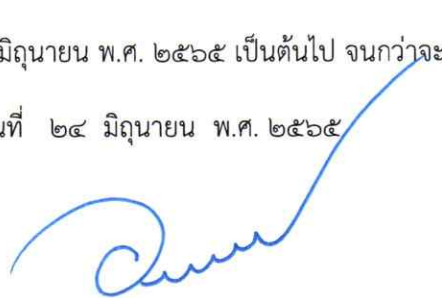 มิถุนายน พ.ศ. ๒๕๖๕ เป็นต้นไป จนกว่าจะ
ที่ ๒๔ มิถุนายน พ.ศ. ๒๕๖๕